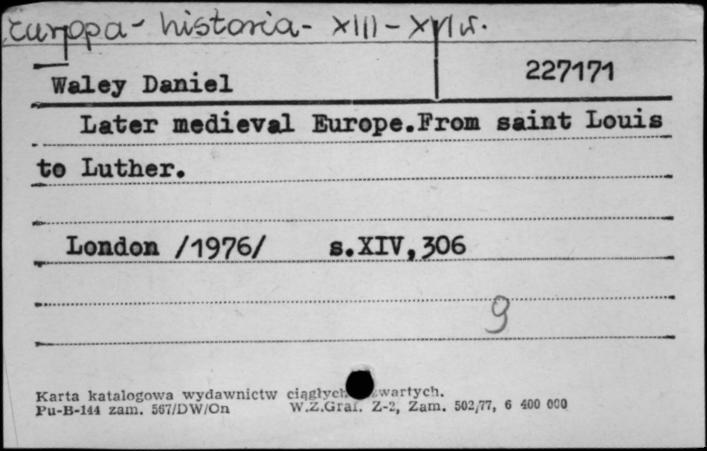 Europa - historia - XIII - XVI w.
Waley Daniel
227171
Later medieval Europe.From saint Louis
to Luther.
London /1976/ s.XIV,306
9
Karta katalogowa wydawnictw ciągłych wartych.
Pu-B-144 zam. 567/DW/On W.Z.Graf. Z-2, Zam. 502/77, 6 400 000